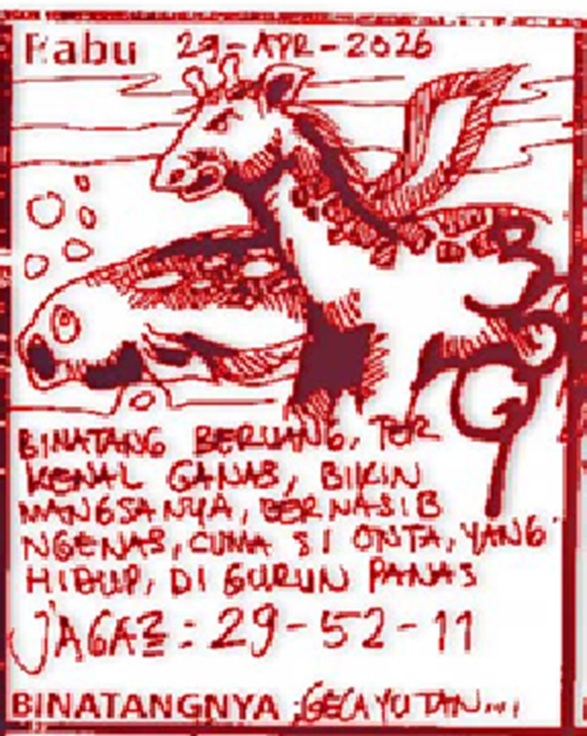 Rabu 29-APR-2026
BINATANG BERUANG, TER
KENAL GANAS, BIKIN
MANGSANYA, BERNASIB
NGENAS, CUMA SI ONTA, YANG
HIDUP, DI GURUN PANAS
JAGA2 : 29-52-11
BINATANGNYA :GECAYUTAN....